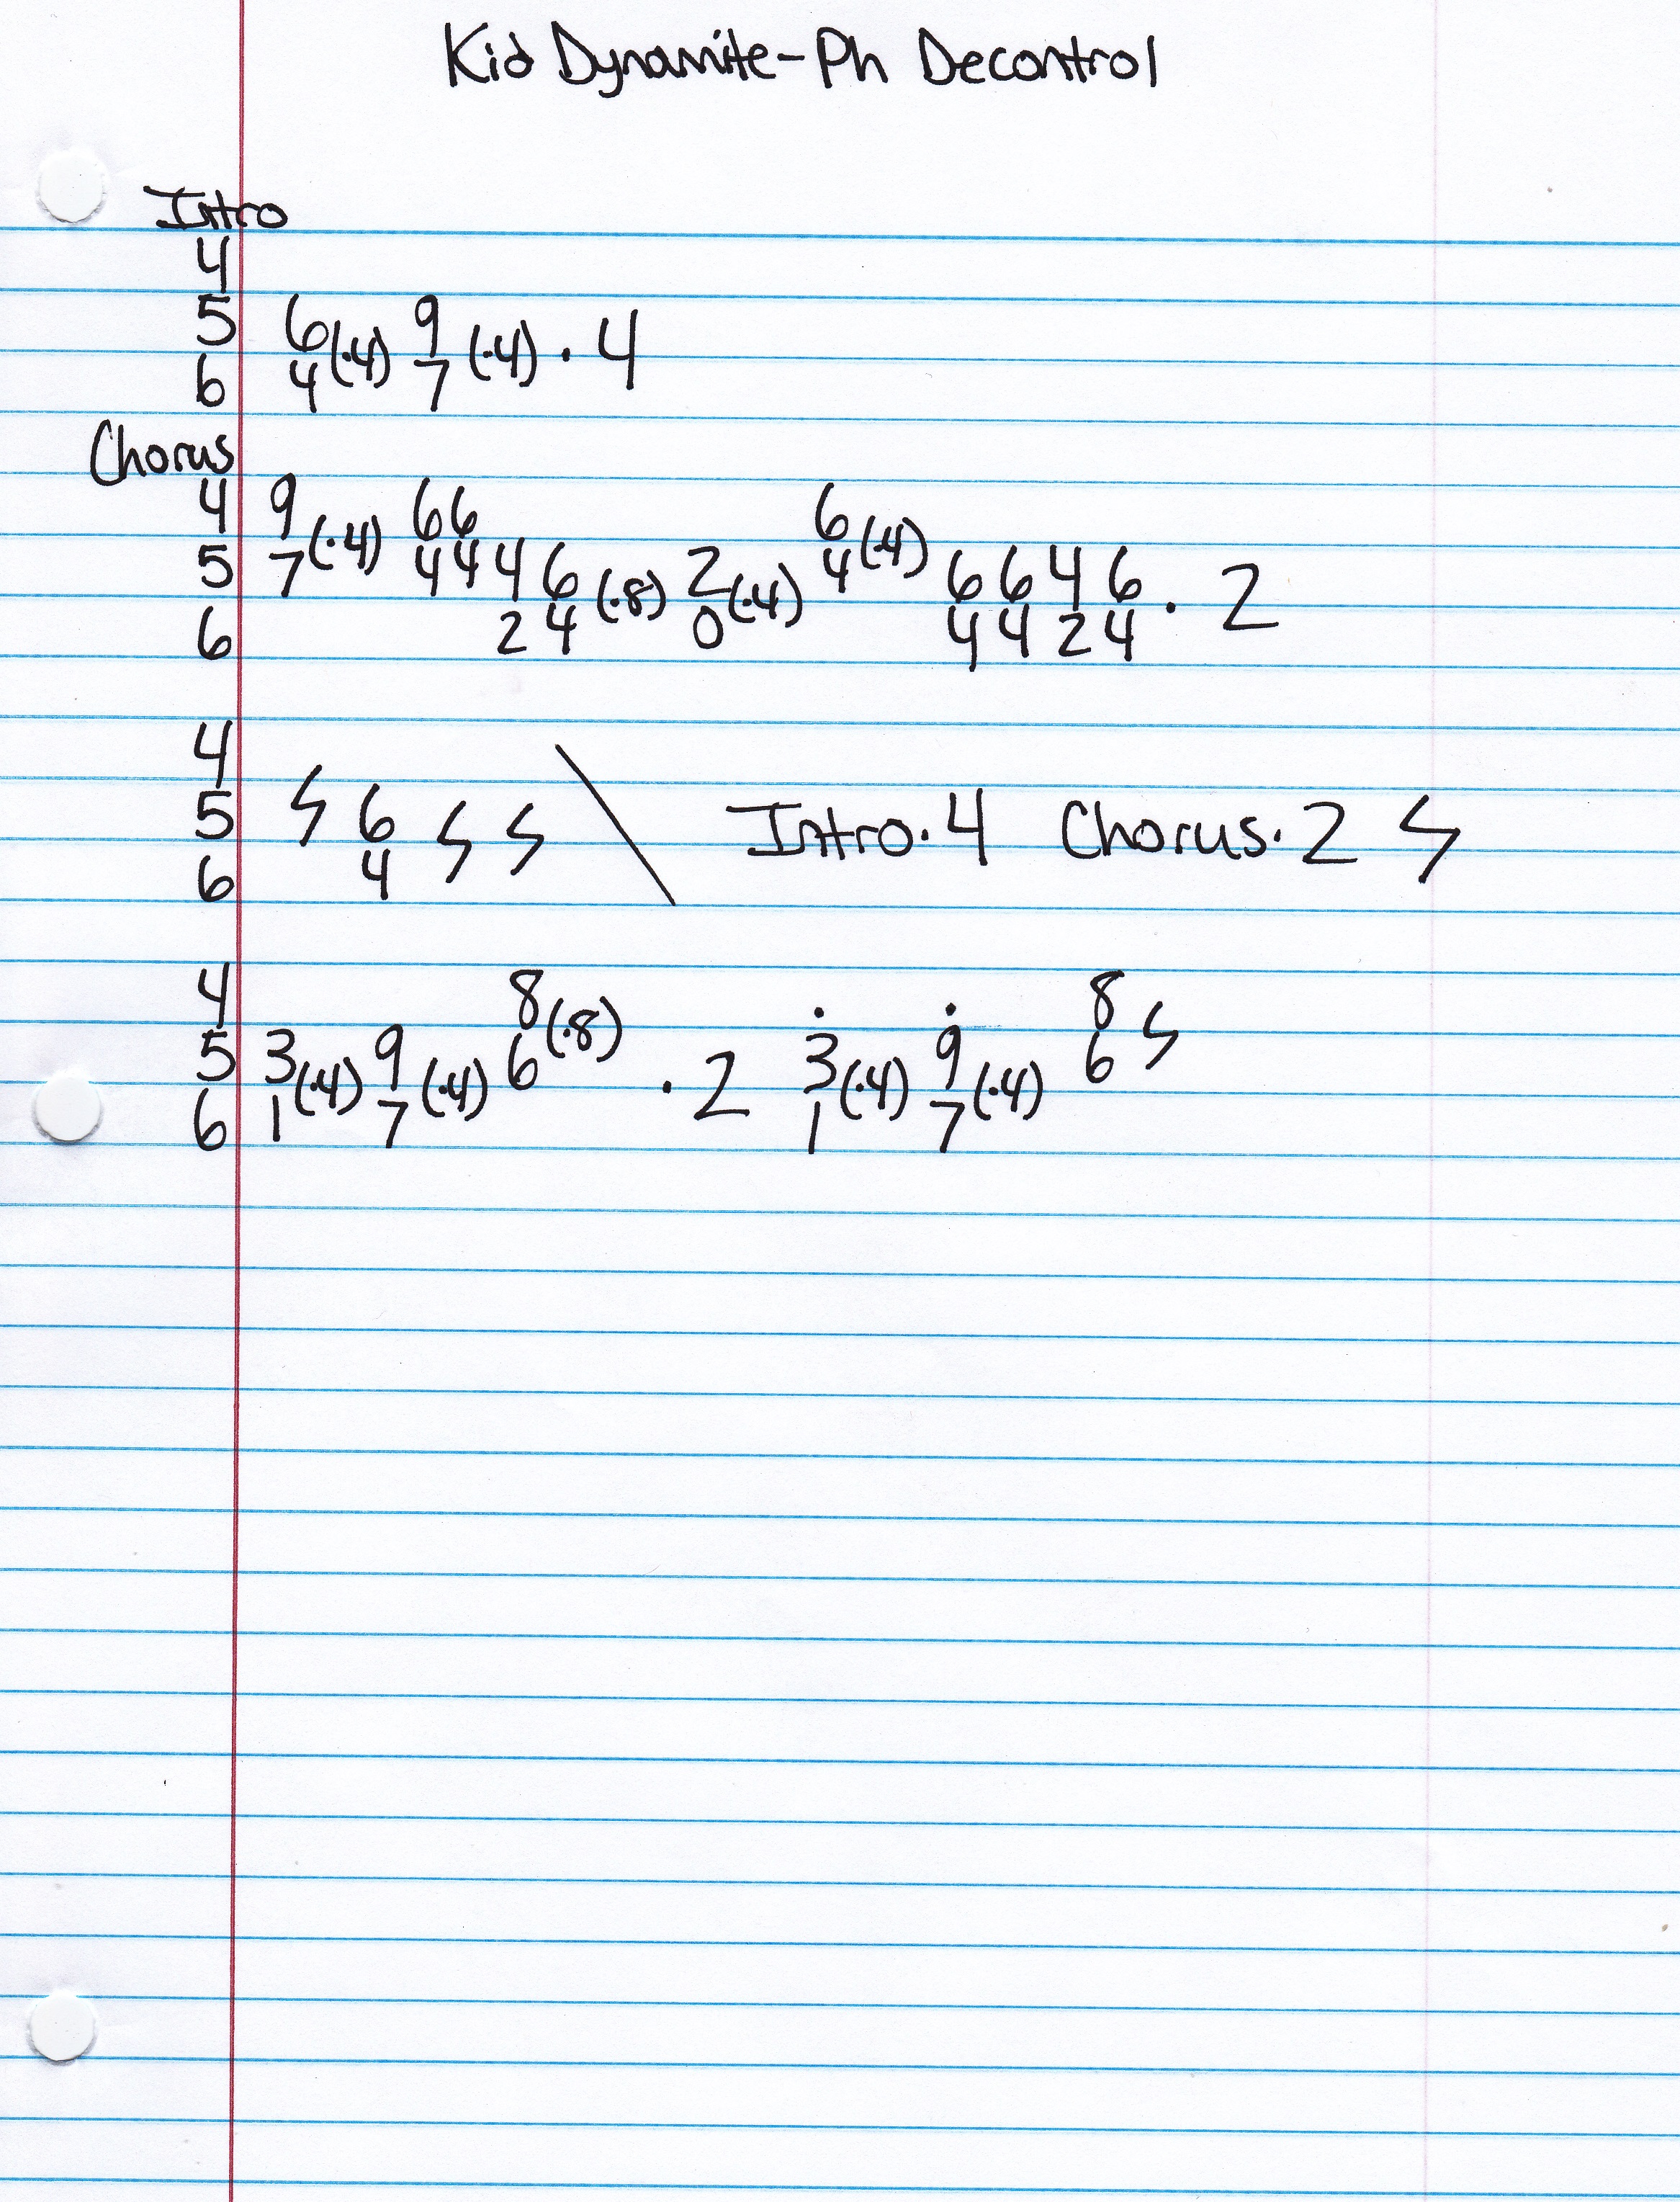 Kid Dynamite-Ph Decontrol
Intro
4
5 6 (·4) 9 (·4) · 4
6 4 7
Chorus
4 9 (·4) 6 6 6 (·4)
5 7 4 4 4 6 (·8) 2 (·4) 4 6 6 4 6 · 2
6 2 4 0 4 4 2 4
4
5 6 Intro·4 Chorus·2
6 4
4 8 (·8) 8
5 3 (·4) 9 (·4) 6 · 2 3 (·4) 9 (·4) 6
6 1 7 1 7